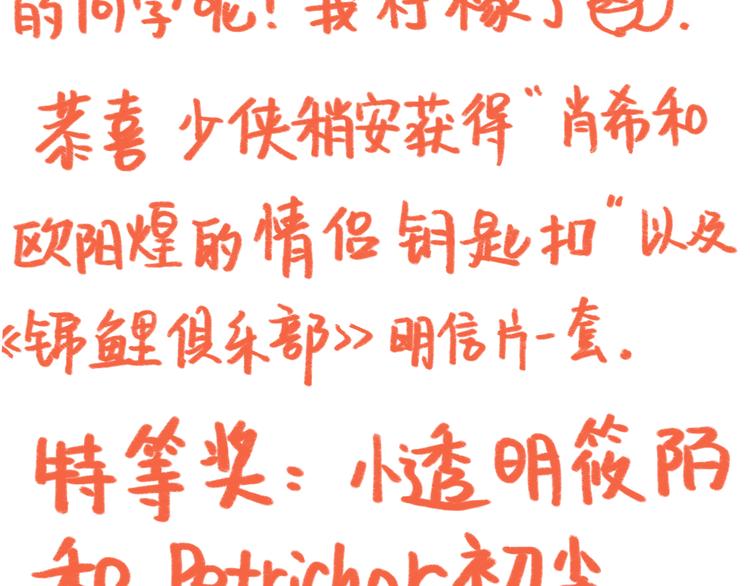 的同学呢！我柠檬了
恭喜 少侠稍安获得“肖希和
欧阳煌的情侣钥匙扣”以及
《锦鲤俱乐部》明信片一套.
特等奖：小透明筱陌
和 Petrichor初尘